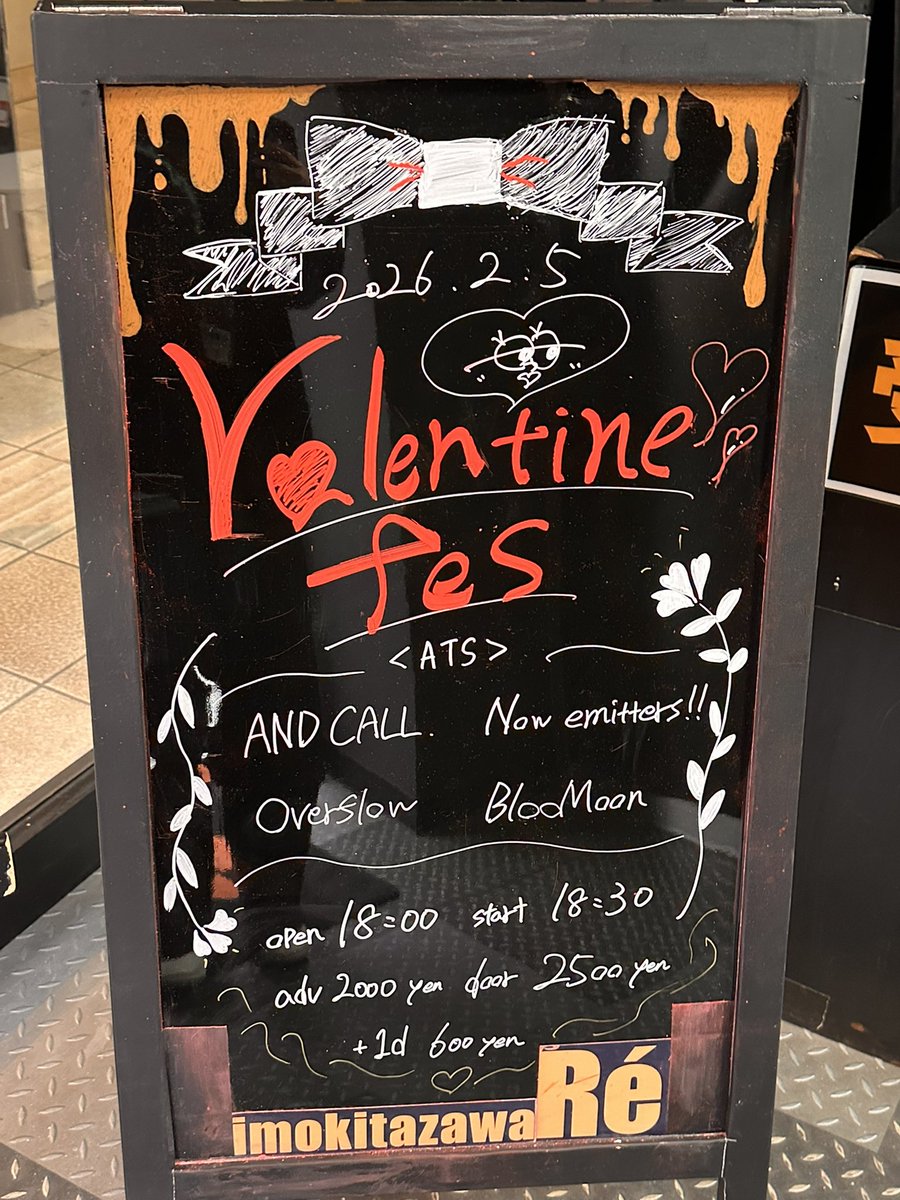 2026.2.5
Valentine
fes
<ATS>
AND CALL. Now emitters!!
Overslow BlooMoon
open 18:00 start 18:30
adv 2000 yen door 2500 yen
+1d 600 yen
imokitazawa Ré